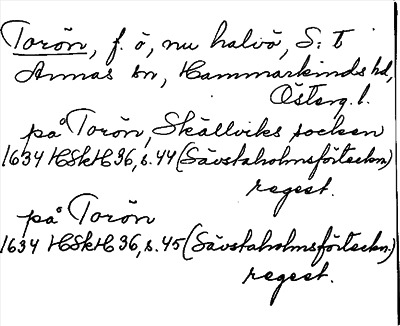 Torön, f. ö, nu halvö, S:t
Annas sn, Hammarkinds hd,
Österg. l.
på Torön, Skällviks socken
1634 HSkH 36, s. 44 (Sävstaholmsförteckn.)
regest.
på Torön
1634 HSkH 36, s. 45 (Sävstaholmsförteckn.)
regest.